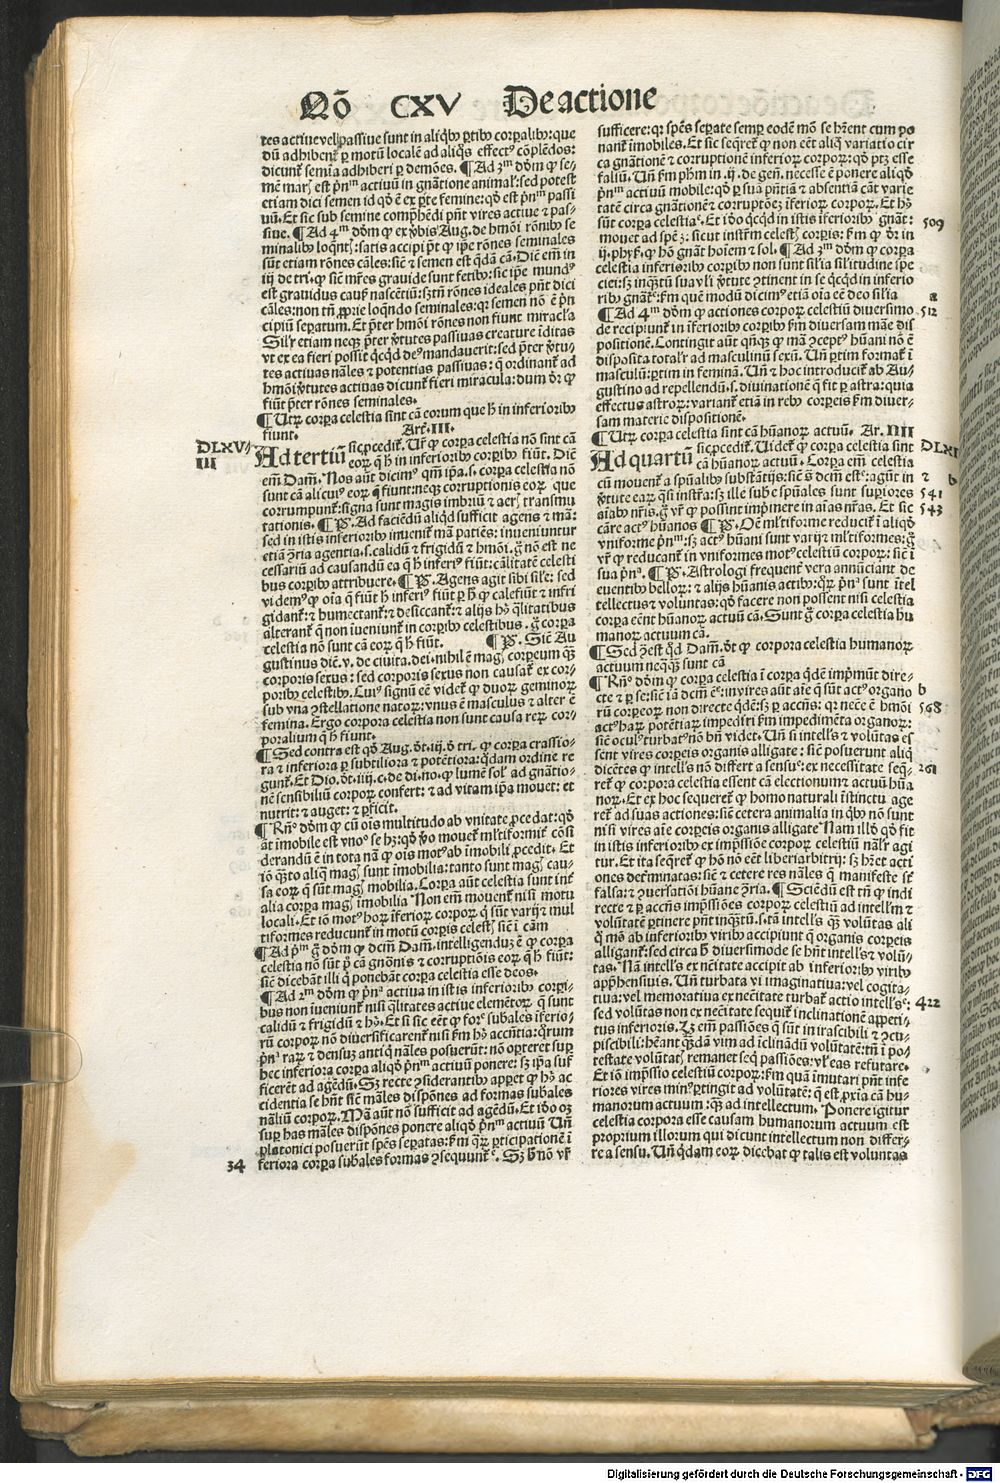 Nō CXV De actione
tes actiue vel passiue sunt in aliqb⁹ ꝑtib⁹ corꝑalib⁹: que
dū adhibent̄ ꝑ motū localē ad aliqͦs effect⁹ cōplēdos:
dicunt̄ semīa adhiberi ꝑ demōes. ¶ Ad 3ᵐ dōm ꝙ se-
mē mar̄ est pͥnᵐ actiuū in gnātione animal̄: sed potest
etiam dici semen id qd̓ ē ex ꝑte femine: qd̓ est pͥnᵐ passi
uū. Et sic sub semine comp̄hēdi pn̄t vires actiue ⁊ pas-
siue. ¶ Ad 4ᵐ dōm ꝙ ex ꝟbis Aug. de hmōi rōnib⁹ se
minalib⁹ loqn̄t̄: satis accipi pt̄ ꝙ ip̄e rōnes seminales
sūt etiam rōnes cāles: sic̄ ⁊ semen est qd̄ā cā. Dic̄ em̄ in
iij de tri. ꝙ sic̄ mr̄es grauide sunt fetib⁹: sic ip̄e mund⁹
est grauidus causꝭ nascētiū: sꝫ tn̄ rōnes ideales pn̄t dici
cāles: non tn̄ ꝓprie loqn̄do seminales: qꝛ semen nō ē pͥn
cipiū sepatum. Et p̄ter hmōi rōnes non fiunt miracl̓a
Silr̄ etiam neqꝫ p̄ter ꝟtutes passiuas creature īditas
vt ex ea fieri possit qͥcqd̓ de⁹ mandauerit: sed p̄ter ꝟtu-
tes actiuas nāles ⁊ potentias passiuas: q̄ ordinant̄ ad
hmōi ꝟtutes actiuas dicunt̄ fieri miracula: dum dr̄ ꝙ
fiūt p̄ter rōnes seminales.
¶ Utꝝ corꝑa celestia sint cā eorum que h̄ in inferiorib⁹
fiunt. Art̄. III.
DLXV
III
Ad tertiū sic ꝓcedit̄. Ur̄ ꝙ corꝑa celestia nō sint cā
eoꝝ q̄ h̄ in inferiorib⁹ corꝑib⁹ fiūt. Dic̄
em̄ Dam̄. Nos aūt dicim⁹ qm̄ ip̄a. s. corꝑa celestia nō
sunt cā alicui⁹ eoꝝ q̄ fiunt: neqꝫ corruptionis eoꝝ que
corrumpunt̄: signa sunt magis imbriū ⁊ aer̄ transmu
tationis. ¶ P̄. Ad faciēdū aliqd̓ sufficit agens ⁊ mā:
sed in istis inferiorib⁹ inuenit̄ mā patiēs: inueniuntur
etiā ꝯria agentia. s. calidū ⁊ frigidū ⁊ hmōi. g̊ nō est ne
cessariū ad causandū ea q̄ h̄ inferi⁹ fiūt: cālitatē celesti
bus corꝑib⁹ attribuere. ¶ P̄. Agens agit sibi sil̓e: sed
videm⁹ ꝙ oīa q̄ fiūt h̄ inferi⁹ fiūt ꝑ h̄ ꝙ calefiūt ⁊ infri
gidant̄: ⁊ humectant̄: ⁊ desiccant̄: ⁊ alijs h⁹ qͣlitatibus
alterant̄ q̄ non īueniunt̄ in corꝑib⁹ celestibus. g̊ corꝑa
celestia nō sunt cā eoꝝ q̄ h̄ fiūt. ¶ P̄. Sic̄ Au
gustinus dic̄. v. de ciuita. dei. nihil ē maḡ corꝑeum qͣꝫ
corporis sexus: sed corporis sexus non causat̄ ex cor-
porib⁹ celestib⁹. Cui⁹ signū eē videt̄ ꝙ duoꝝ geminoꝝ
sub vna ꝯstellatione natoꝝ: vnus ē masculus ⁊ alter ē
femina. Ergo corpora celestia non sunt causa reꝝ cor-
poralium q̄ h̄ fiunt.
¶ Sed contra est qd̓ Aug. dt̄. iij. d̓ tri. ꝙ corꝑa crassio-
ra ⁊ inferiora ꝑ subtiliora ⁊ potētiora: qd̄am ordine re
gunt̄. Et Dio. dt̄. iiij. c. de di. no. ꝙ lumē sol̓ ad gnātio-
nē sensibiliū corpoꝝ confert: ⁊ ad vitam ip̄a mouet: et
nutrit: ⁊ auget: ⁊ ꝑficit.
¶ Rn̄º dōm ꝙ cū oīs multitudo ab vnitate ꝓcedat: qd̓
āt īmobile est vnoº se hꝫ: qd̓ ꝟo mouet̄ ml̓tiformit̄ cōsi
derandū ē in tota nā ꝙ oīs mot⁹ ab īmobili ꝓcedit. Et
iō qͣꝫto aliq̄ maḡ sunt īmobilia: tanto sunt maḡ cau-
sa eoꝝ q̄ sūt maḡ mobilia. Corꝑa aūt celestia sunt int̄
alia corꝑa maḡ īmobilia. Non em̄ mouent̄ nisi motu
locali. Et iō mot⁹ hoꝝ īferioꝝ corpoꝝ q̄ sūt varij ⁊ mul
tiformes reducunt̄ in motū corꝑis celest̄ sic̄ ī cām
¶ Ad pͥᵐ g̊ dōm ꝙ dcm̄ Dam̄. intelligenduꝫ ē ꝙ corꝑa
celestia nō sūt pͥ cā gnōnis ⁊ corruptiōis eoꝝ q̄ h̄ fiūt:
sic̄ dicebāt illi q̄ ponebāt corꝑa celestia esse deos.
¶ Ad 2ᵐ dōm ꝙ pͥnᵃ actiua in istis inferiorib⁹ corꝑi-
bus non īueniunt̄ nisi qͣlitates actiue elemētoꝝ. q̄ sunt
calidū ⁊ frigidū ⁊ h⁹. Et si sic eēt ꝙ forᵉ subales īferio-
rū corpoꝝ nō diuersificarent̄ nisi ẜm h⁹ accn̄tia: qͦrum
pͥnᵃ raꝝ ⁊ densuꝫ antiqͥ nāles posuerūt: nō oꝑteret sup̄
hec inferiora corꝑa aliqd̓ pͥnᵐ actiuū ponere: sꝫ ip̄a suf
ficerēt ad agēdū. Sꝫ recte ꝯsiderantib⁹ apꝑet ꝙ h⁹ ac
cidentia se hn̄t sic̄ māles dispōnes ad formas subales
nāliū corpoꝝ. Mā aūt nō sufficit ad agēdū. Et iō oꝫ
sup̄ has māles dispōnes ponere aliqd̓ pͥnᵐ actiuū Un̄
platonici posuerūt spēs seꝑatas: ẜm qͣꝝ ꝑticipationē ī
34 feriora corꝑa subales formas ꝯsequunt̄. Sꝫ h̄ nō vr̄
sufficere: qꝛ spēs seꝑate semꝑ eodē mō se hr̄ent cum po
nant̄ īmobiles. Et sic seqͬet̄ ꝙ non eēt aliq̄ variatio cir
ca gnātionē ⁊ corruptionē inferioꝝ corpoꝝ: qd̓ ptꝫ esse
falsū. Un̄ ẜm ph̄m in. ij. de gen̄. necesse ē ponere aliqd̓
pͥnᵐ actiuū mobile: qd̓ ꝑ sua pn̄tiā ⁊ absentiā cāt varie
tatē circa gnātionē ⁊ corruptōeꝫ īferioꝝ corpoꝝ. Et h⁹
sūt corꝑa celestiaᵉ. Et iō qͥcqd̓ in istis īferiorib⁹ gnāt: 509
mouet ad spēꝫ: sicut instr̄m celest̄ corꝑis: ẜm ꝙ dr̄ in
ij. phyꝭ. ꝙ hō gnāt hoīem ⁊ sol. ¶ Ad 3ᵐ dōm ꝙ corꝑa
celestia inferiorib⁹ corꝑib⁹ non sunt sil̓ia sil̓itudine spe
ciei: sꝫ inqͣꝫtū sua vl̓i ꝟtute ꝯtinent in se qͥcqd̓ in inferio
rib⁹ gnāt̄: ẜm quē modū dicim⁹ etiā oīa eē deo sil̓ia a
¶ Ad 4ᵐ dōm ꝙ actiones corpoꝝ celestiū diuersimo 512
de recipiunt̄ in īferiorib⁹ corꝑib⁹ ẜm diuersam māe dis
positionē. Contingit aūt qn̄qꝫ ꝙ mā ꝯcept⁹ hūani nō ē
disposita total̓r ad masculinū sexū. Un̄ ꝑtim format̄ ī
masculū: ꝑtim in feminā. Un̄ ⁊ hoc introducit̄ ab Au-
gustino ad repellendū. s. diuinationē q̄ fit ꝑ astra: quia
effectus astroꝝ: variant̄ etiā in reb⁹ corꝑeis ẜm diuer-
sam materie dispositionē.
¶ Utꝝ corꝑa celestia sint cā hūanoꝝ actuū. Ar. IIII
Ad quartū sic ꝓcedit̄. Uidet̄ ꝙ corꝑa celestia sint DLXI
cā hūanoꝝ actuū. Corꝑa em̄ celestia b
cū mouent̄ a spūalib⁹ substātijs: sic̄ s̄ dcm̄ estᶜ: agūt in ⁊
ꝟtute eaꝝ qͣsi instr̄a: sꝫ ille sub̄e spūales sunt supiores 541
aīab⁹ nr̄is. g̊ vr̄ ꝙ possint imp̄mere in aīas nr̄as. Et sic 543
cāre act⁹ hūanos ¶ P̄. Oē ml̓tiforme reducit̄ ī aliqd̓
vniforme pͥnᵐ: sꝫ act⁹ hūani sunt varij ⁊ ml̓tiformes: g̊
vr̄ ꝙ reducant̄ in vniformes mot⁹ celestiū corpoꝝ: sic̄ ī
sua pͥnᵃ. ¶ P̄. Astrologi frequent̄ vera annūciant de
euentib⁹ belloꝝ: ⁊ alijs hūanis actib⁹: qͦꝝ pͥnᵃ sunt ītel
tellectus ⁊ voluntas: qd̓ facere non possent nisi celestia
corꝑa eēnt hūanoꝝ actuū cā. Sunt g̊ corꝑa celestia hu
manoꝝ actuum cā.
¶ Sed ꝯ est qd̓ Dam̄. dt̄ ꝙ corpora celestia humanoꝝ
actuum neqͣqͣꝫ sunt cā
¶ Rn̄º dōm ꝙ corꝑa celestia ī corꝑa qd̄ē imp̄mūt dire-
cte ⁊ ꝑ se: sic̄ iā dcm̄ ēᵉ: in vires aūt aīe q̄ sūt act⁹ organo b
rū corꝑeoꝝ non directe qd̄ē: sꝫ ꝑ accn̄s: qꝛ necē ē hmōi 568
act⁹ haꝝ potētiaꝝ impediri ẜm impedimēta organoꝝ:
sic̄ ocul⁹ turbat⁹ nō bn̄ videt. Un̄ si intell̓s ⁊ volūtas eſ
sent vires corꝑeis organis alligate: sic̄ posuerunt aliq̄
dicētes ꝙ intell̓s nō differt a sensuᶜ: ex necessitate seqͬ- 261
ret̄ ꝙ corpora celestia essent cā electionum ⁊ actuū hūa
noꝝ. Et ex hoc sequeret̄ ꝙ homo naturali īstinctu age
ret̄ ad suas actiones: sic̄ cetera animalia in qͥb⁹ nō sunt
nisi vires aīe corꝑeis organis alligate Nam illd̓ qd̓ fit
in istis inferiorib⁹ ex imp̄ssiōe corpoꝝ celestiū nāl̓r agi
tur. Et ita seqͬet̄ ꝙ hō nō eēt liberi arbitrij: sꝫ hr̄et acti
ones determinatas: sic̄ ⁊ cetere res nāles q̄ manifeste st̄
falsa: ⁊ ꝯuersatiōi hūane ꝯria. ¶ Sciēdū est tn̄ ꝙ indi
recte ⁊ ꝑ accn̄s imp̄ssiōes corpoꝝ celestiū ad intell̓m ⁊
volūtatē ꝑtinere pn̄t inqͣꝫtū. s. tā intell̓s qͣꝫ volūtas ali
qͦ mō ab inferiorib⁹ virib⁹ accipiunt q̄ organis corꝑeis
alligant̄: sed circa h̄ diuersimode se hn̄t intell̓s ⁊ volū-
tas. Nā intell̓s ex nc̄itate accipit ab inferiorib⁹ virib⁹
app̄hensiuis. Un̄ turbata vi imaginatiua: vel cogita-
tiua: vel memoratiua ex nc̄itate turbat̄ actio intell̓sᵉ: 422
sed volūtas non ex nc̄itate sequit̄ inclinationē appeti-
tus inferioris. Lꝫ em̄ passiōes q̄ sūt in irascibili ⁊ ꝯcu-
piscibili: hēant qͣndā vim ad īclinādū volūtatē: tn̄ ī po-
testate volūtat̄ remanet seqͥ passiōes: vl̓ eas refutare.
Et iō imp̄ssio celestiū corpoꝝ: ẜm quā īmutari pn̄t infe
riores vires min⁹ ꝑtingit ad volūtatē: q̄ est ꝓxīa cā hu-
manorum actuum: qͣꝫ ad intellectum. Ponere igitur
celestia corpora esse causam humanorum actuum est
proprium illorum qui dicunt intellectum non differ-
re a sensu. Un̄ qd̄am eoꝝ dicebat ꝙ talis est voluntas
Digitalisierung gefördert durch die Deutsche Forschungsgemeinschaft - DFG